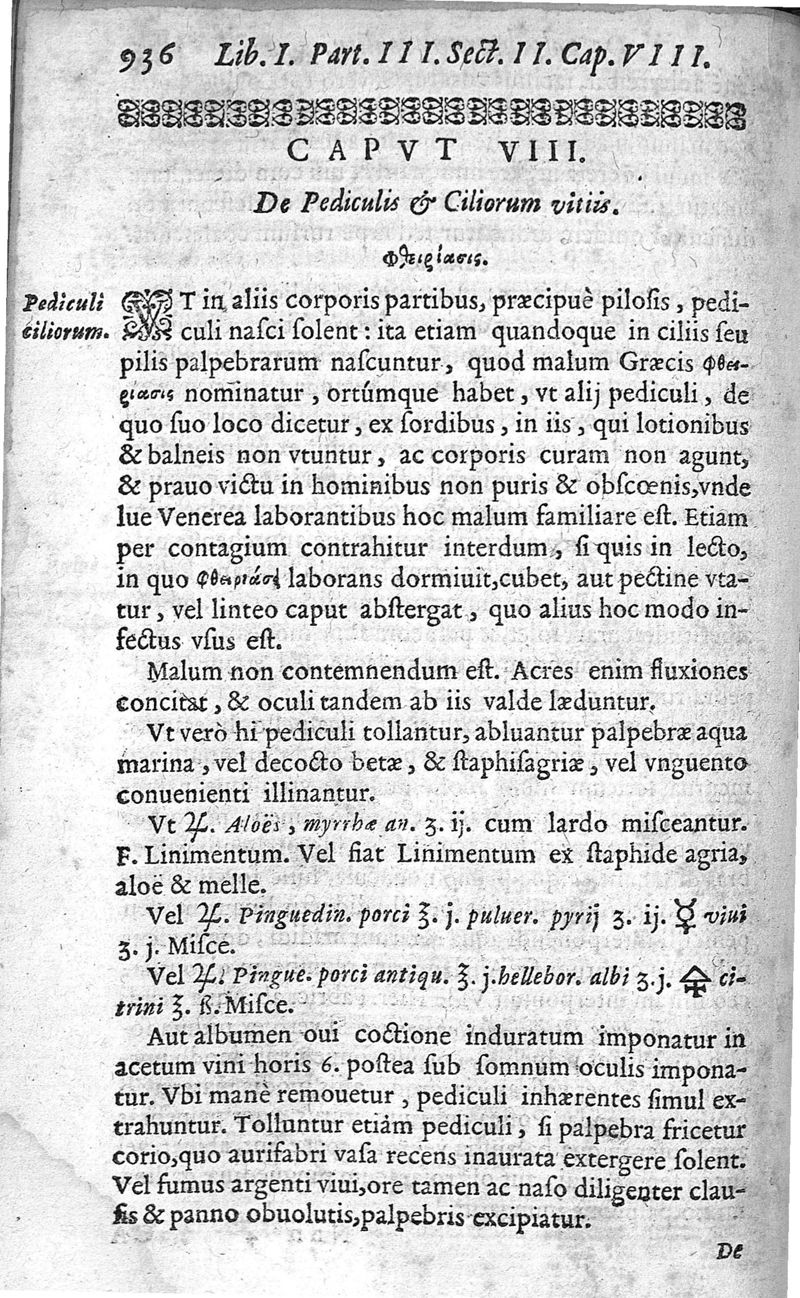 936 Lib. I. Part. III. Sect. II. Cap. VIII.
CAPVT VIII.
De Pediculis & Ciliorum vitiis.
Φθειρίασις.
Pediculi
ciliorum.
VT in aliis corporis partibus, præcipuè pilosis, pedi-
culi nasci solent: ita etiam quandoque in ciliis seu
pilis palpebrarum nascuntur, quod malum Græcis φθει-
ρίασις nominatur, ortúmque habet, vt alij pediculi, de
quo suo loco dicetur, ex sordibus, in iis, qui lotionibus
& balneis non vtuntur, ac corporis curam non agunt,
& prauo victu in hominibus non puris & obscœnis, vnde
lue Venerea laborantibus hoc malum familiare est. Etiam
per contagium contrahitur interdum, si quis in lecto,
in quo φθειριάσι laborans dormiuit, cubet, aut pectine vta-
tur, vel linteo caput abstergat, quo alius hoc modo in-
fectus vsus est.
Malum non contemnendum est. Acres enim fluxiones
concitat, & oculi tandem ab iis valde læduntur.
Vt verò hi pediculi tollantur, abluantur palpebræ aqua
marina, vel decocto betæ, & staphisagriæ, vel vnguento
conuenienti illinantur.
Vt ♃. Aloës, myrrhæ an. ʒ. ij. cum lardo misceantur.
F. Linimentum. Vel fiat Linimentum ex staphide agria,
aloë & melle.
Vel ♃. Pinguedin. porci ℥. j. puluer. pyrij ʒ. ij. ☿ viui
ʒ. j. Misce.
Vel ♃. Pingue. porci antiqu. ℥. j. hellebor. albi ʒ. j. 🜍 ci-
trini ℥. ß. Misce.
Aut albumen oui coctione induratum imponatur in
acetum vini horis 6. postea sub somnum oculis impona-
tur. Vbi manè remouetur, pediculi inhærentes simul ex-
trahuntur. Tolluntur etiám pediculi, si palpebra fricetur
corio, quo aurifabri vasa recens inaurata extergere solent.
Vel fumus argenti viui, ore tamen ac naso diligenter clau-
sis & panno obuolutis, palpebris excipiatur.
De